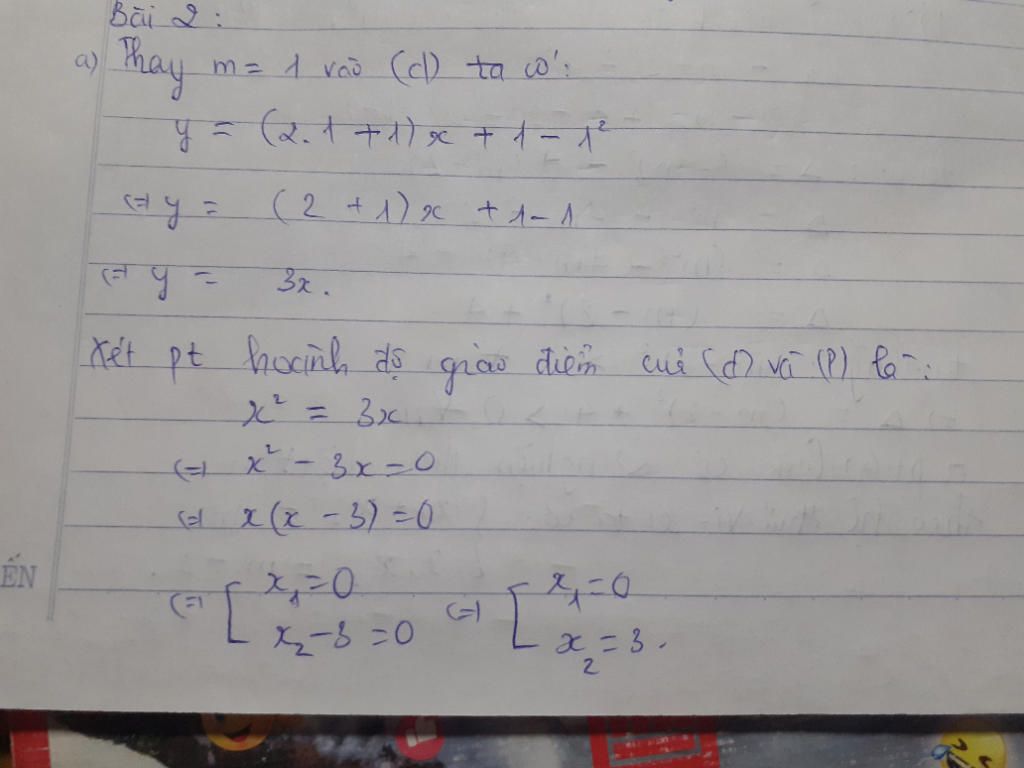 Bài 2 :
a) Thay m = 1 vào (d) ta có :
y = (2.1 + 1)x + 1 - 1²
(=) y = (2 + 1)x + 1 - 1
(=) y = 3x.
Xét pt hoành độ giao điểm của (d) và (P) là :
x² = 3x
(=) x² - 3x = 0
(=) x(x - 3) = 0
(=) [ x₁ = 0 (=) [ x₁ = 0
x₂ - 3 = 0 x₂ = 3.
ẾN